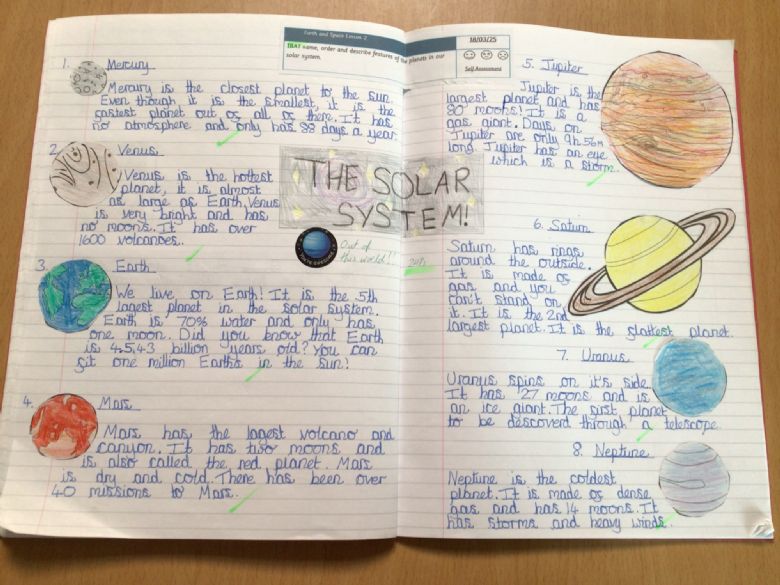 Earth and Space Lesson 2
IBAT name, order and describe features of the planets in our
solar system.
18/03/25
Self Assessment
1. Mercury
Mercury is the closest planet to the sun.
Even though it is the smallest, it is the
fastest planet out of all of them. It has
no atmosphere and only has 88 days a year.
2. Venus
Venus is the hottest
planet, it is almost
as large as Earth. Venus
is very bright and has
no moons. It has over
1600 volcanoes.
3. Earth
We live on Earth! It is the 5th
lagest planet in the solar system.
Earth is 70% water and only has
one moon. Did you know that Earth
is 4.5,43 billion years old? You can
fit one million Earths in the sun!
4. Mars
Mars has the lagest volcano and
canyon. It has two moons and
is also called the red planet. Mars
is dry and cold. There has been over
40 missions to Mars.
THE SOLAR
SYSTEM!
Out of
this world!!
5. Jupiter
Jupiter is the
largest planet and has
80 moons! It is a
gas giant. Days on
Jupiter are only 9h 56m
long. Jupiter has an eye
which is a storm.
6. Saturn
Saturn has rings
around the outside.
It is made of
gas and you
can't stand on
it. It is the 2nd
largest planet. It is the flattest planet.
7. Uranus
Uranus spins on it's side
It has 27 moons and is
an ice giant. The first planet
to be descoverd through a telescope
8. Neptune
Neptune is the coldest
planet. It is made of dense
gas and has 14 moons. It
has storms and heavy winds.